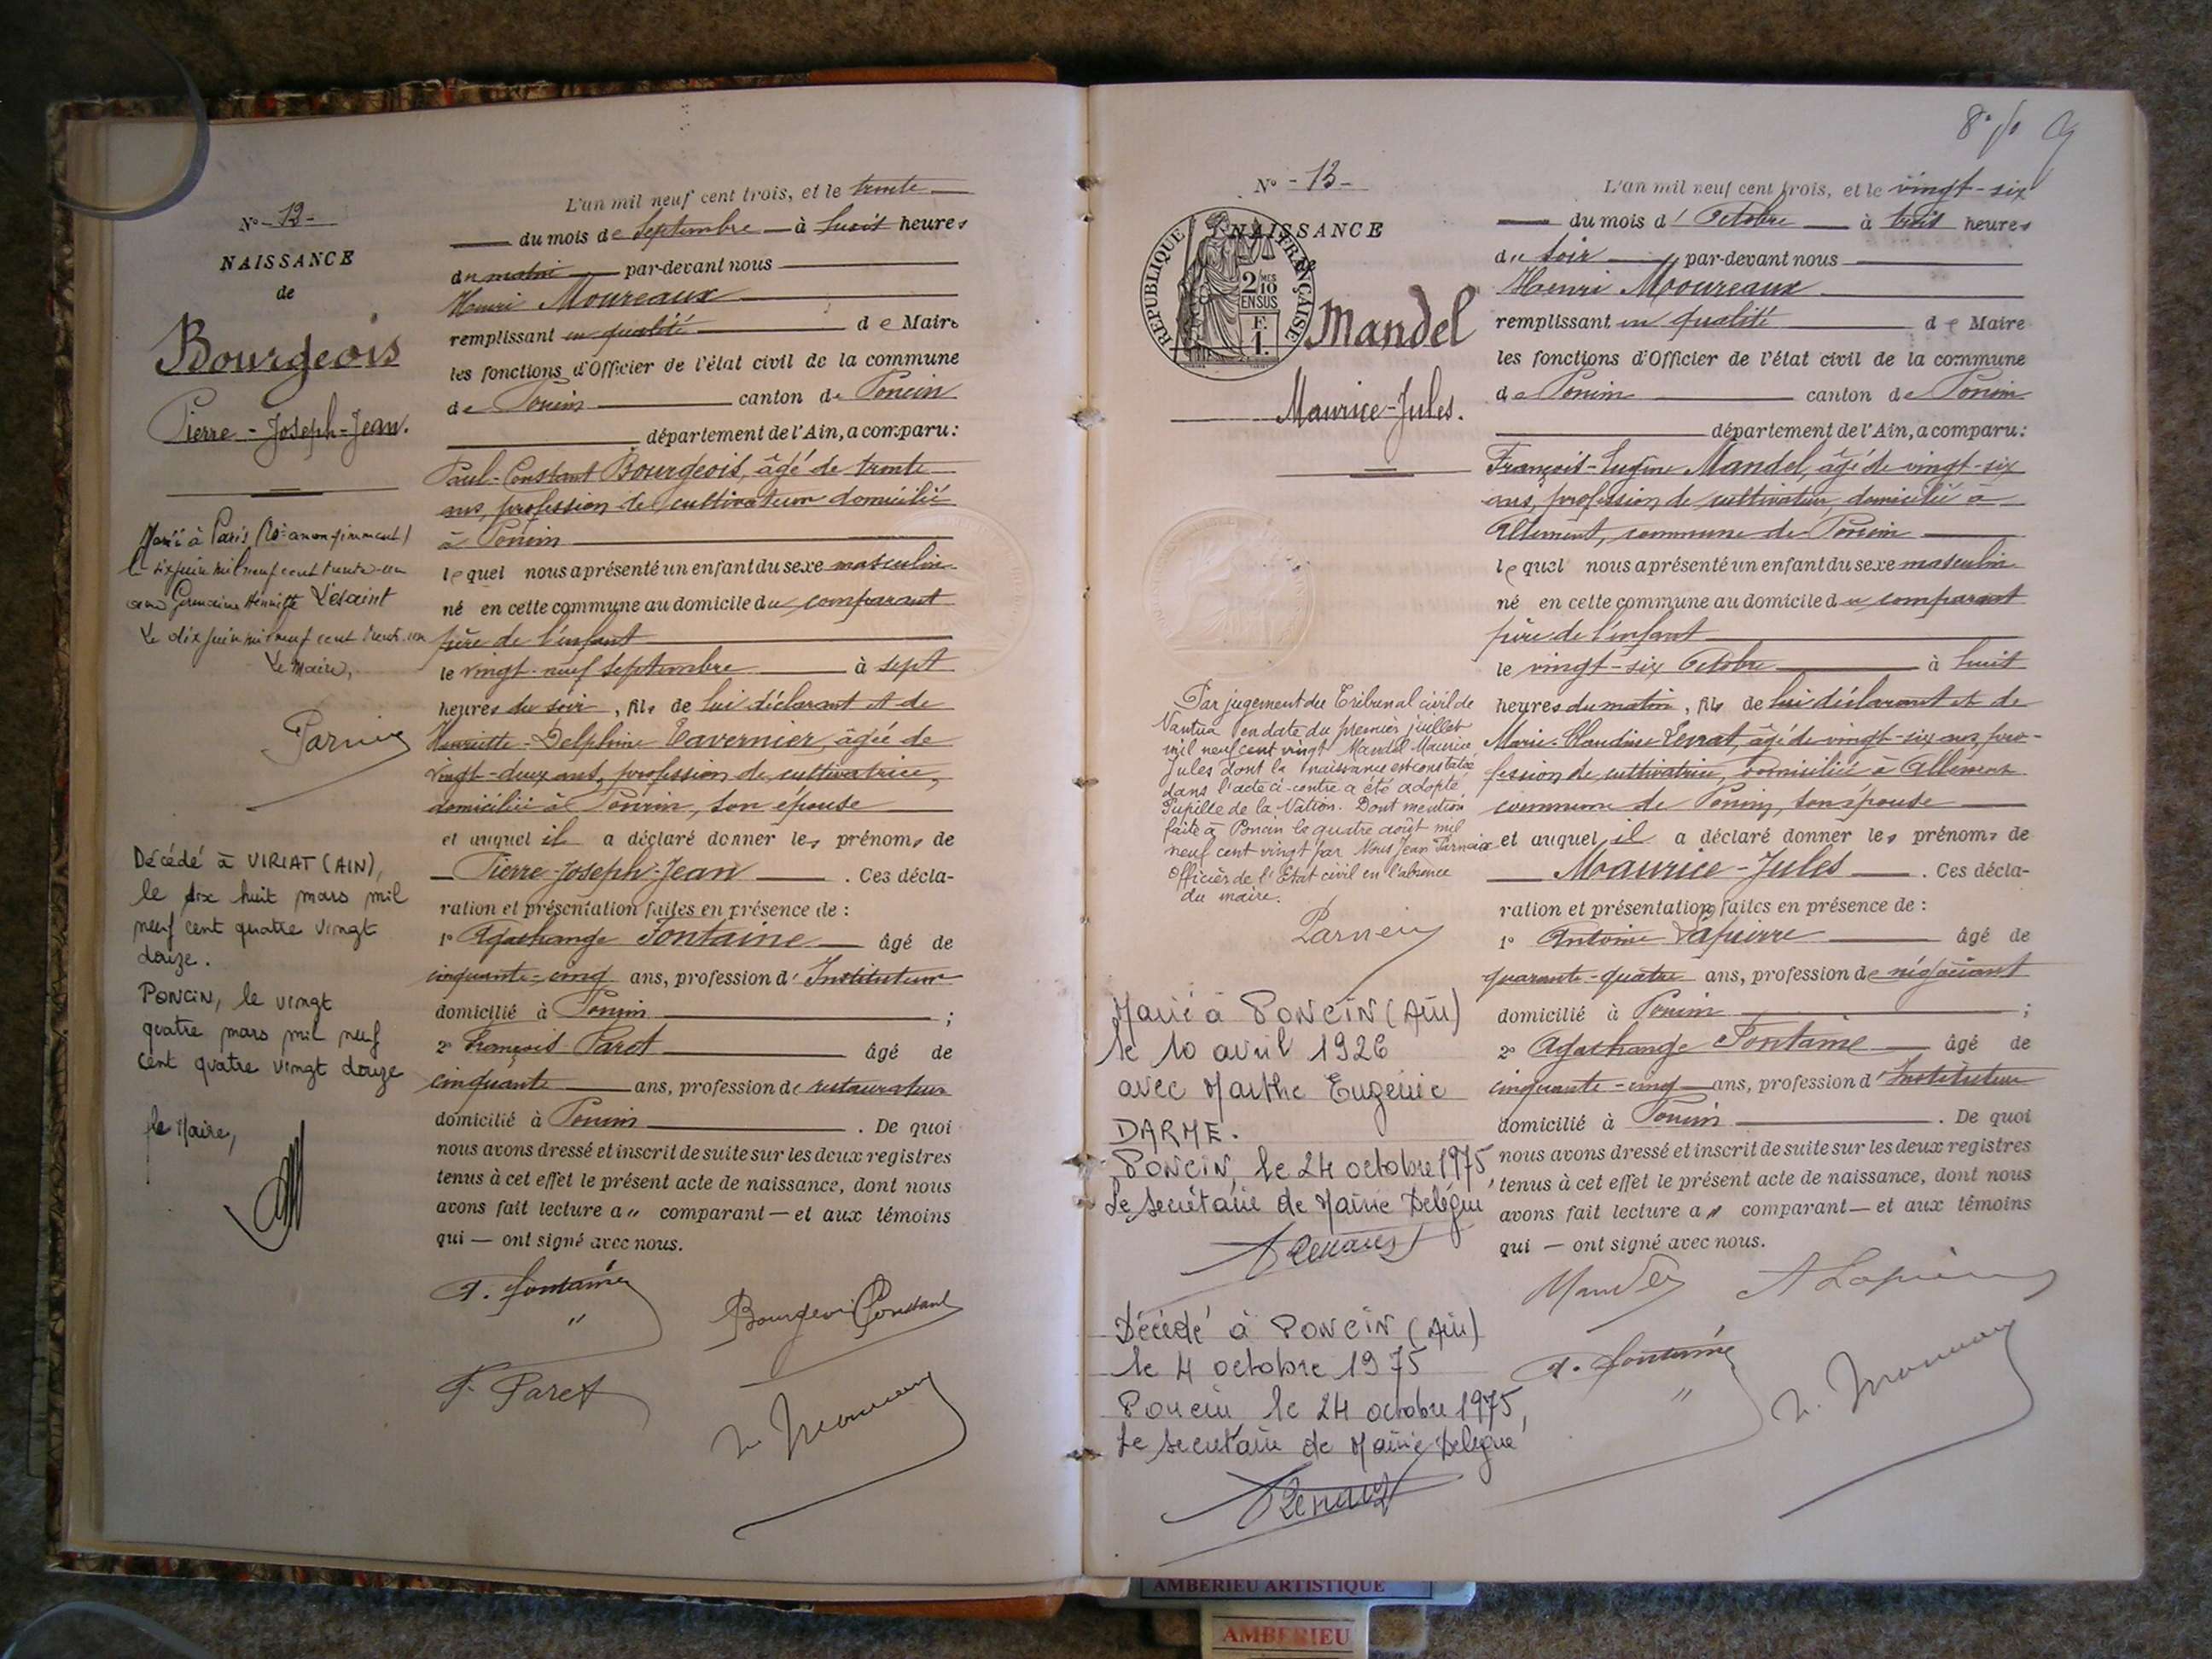 N° -12-
NAISSANCE
de
Bourgeois
Pierre-Joseph-Jean.
Marié à Paris
le six juin mil neuf cent trente-un
avec Germaine Henriette Lesaint
Le dix juin mil neuf cent trente-un
Le Maire,
Décédé à VIRIAT (AIN),
le dix huit mars mil
neuf cent quatre vingt
douze.
PONCIN, le vingt
quatre mars mil neuf
cent quatre vingt douze
Le Maire,
L'an mil neuf cent trois, et le trente
du mois de Septembre à huit heures
du matin par-devant nous
Henri Moureaux
remplissant en qualité de Maire
les fonctions d'Officier de l'état civil de la commune
de Poncin canton de Poncin
département de l'Ain, a comparu:
Paul-Constant Bourgeois, âgé de trente
ans, profession de cultivateur domicilié
à Poncin
lequel nous a présenté un enfant du sexe masculin
né en cette commune au domicile du comparant
père de l'enfant
le vingt-neuf septembre à sept
heures du soir, fils de lui déclarant et de
Henriette-Delphine Tavernier, âgée de
vingt-deux ans, profession de cultivatrice,
domiciliée à Poncin, son épouse
et auquel il a déclaré donner les prénoms de
Pierre-Joseph-Jean. Ces décla-
ration et présentation faites en présence de :
1° Agathange Fontaine âgé de
cinquante-cinq ans, profession d'Instituteur
domicilié à Poncin ;
2° François Paret âgé de
cinquante ans, profession de restaurateur
domicilié à Poncin. De quoi
nous avons dressé et inscrit de suite sur les deux registres
tenus à cet effet le présent acte de naissance, dont nous
avons fait lecture au comparant — et aux témoins
qui — ont signé avec nous.
A. Fontaine
Bourgeois Constant
F. Paret
N° -13-
NAISSANCE
de
REPUBLIQUE FRANÇAISE
2/10 MES
EN SUS
F.
1.
Mandel
Maurice-Jules.
Par jugement du Tribunal civil de
Nantua en date du premier juillet
mil neuf cent vingt Mandel Maurice
Jules dont la naissance est constatée
dans l'acte ci-contre a été adopté
Pupille de la Nation. Dont mention
faite à Poncin le quatre août mil
neuf cent vingt par Nous Jean
Officier de l'Etat civil en l'absence
du maire.
Marié à PONCIN (Ain)
le 10 avril 1926
avec Marthe Eugénie
DARME.
PONCIN, le 24 octobre 1975,
Le secrétaire de Mairie Délégué
Décédé à PONCIN (Ain)
le 4 octobre 1975
Poncin, le 24 octobre 1975,
Le secrétaire de Mairie Délégué
L'an mil neuf cent trois, et le vingt-six
du mois d'Octobre à trois heures
du soir par-devant nous
Henri Moureaux
remplissant en qualité de Maire
les fonctions d'Officier de l'état civil de la commune
de Poncin canton de Poncin
département de l'Ain, a comparu:
François-Eugène Mandel, âgé de vingt-six
ans, profession de cultivateur, domicilié à
Allement, commune de Poncin
lequel nous a présenté un enfant du sexe masculin
né en cette commune au domicile du comparant
père de l'enfant
le vingt-six Octobre à huit
heures du matin, fils de lui déclarant et de
Marie-Claudine Levrat, âgée de vingt-six ans, pro-
fession de cultivatrice, domiciliée à Allement
commune de Poncin, son épouse
et auquel il a déclaré donner les prénoms de
Maurice-Jules. Ces décla-
ration et présentation faites en présence de :
1° Antoine Lapierre âgé de
quarante-quatre ans, profession de négociant
domicilié à Poncin ;
2° Agathange Fontaine âgé de
cinquante-cinq ans, profession d'Instituteur
domicilié à Poncin. De quoi
nous avons dressé et inscrit de suite sur les deux registres
tenus à cet effet le présent acte de naissance, dont nous
avons fait lecture au comparant — et aux témoins
qui — ont signé avec nous.
Mandel
A Lapierre
A. Fontaine
AMBERIEU ARTISTIQUE
AMBERIEU